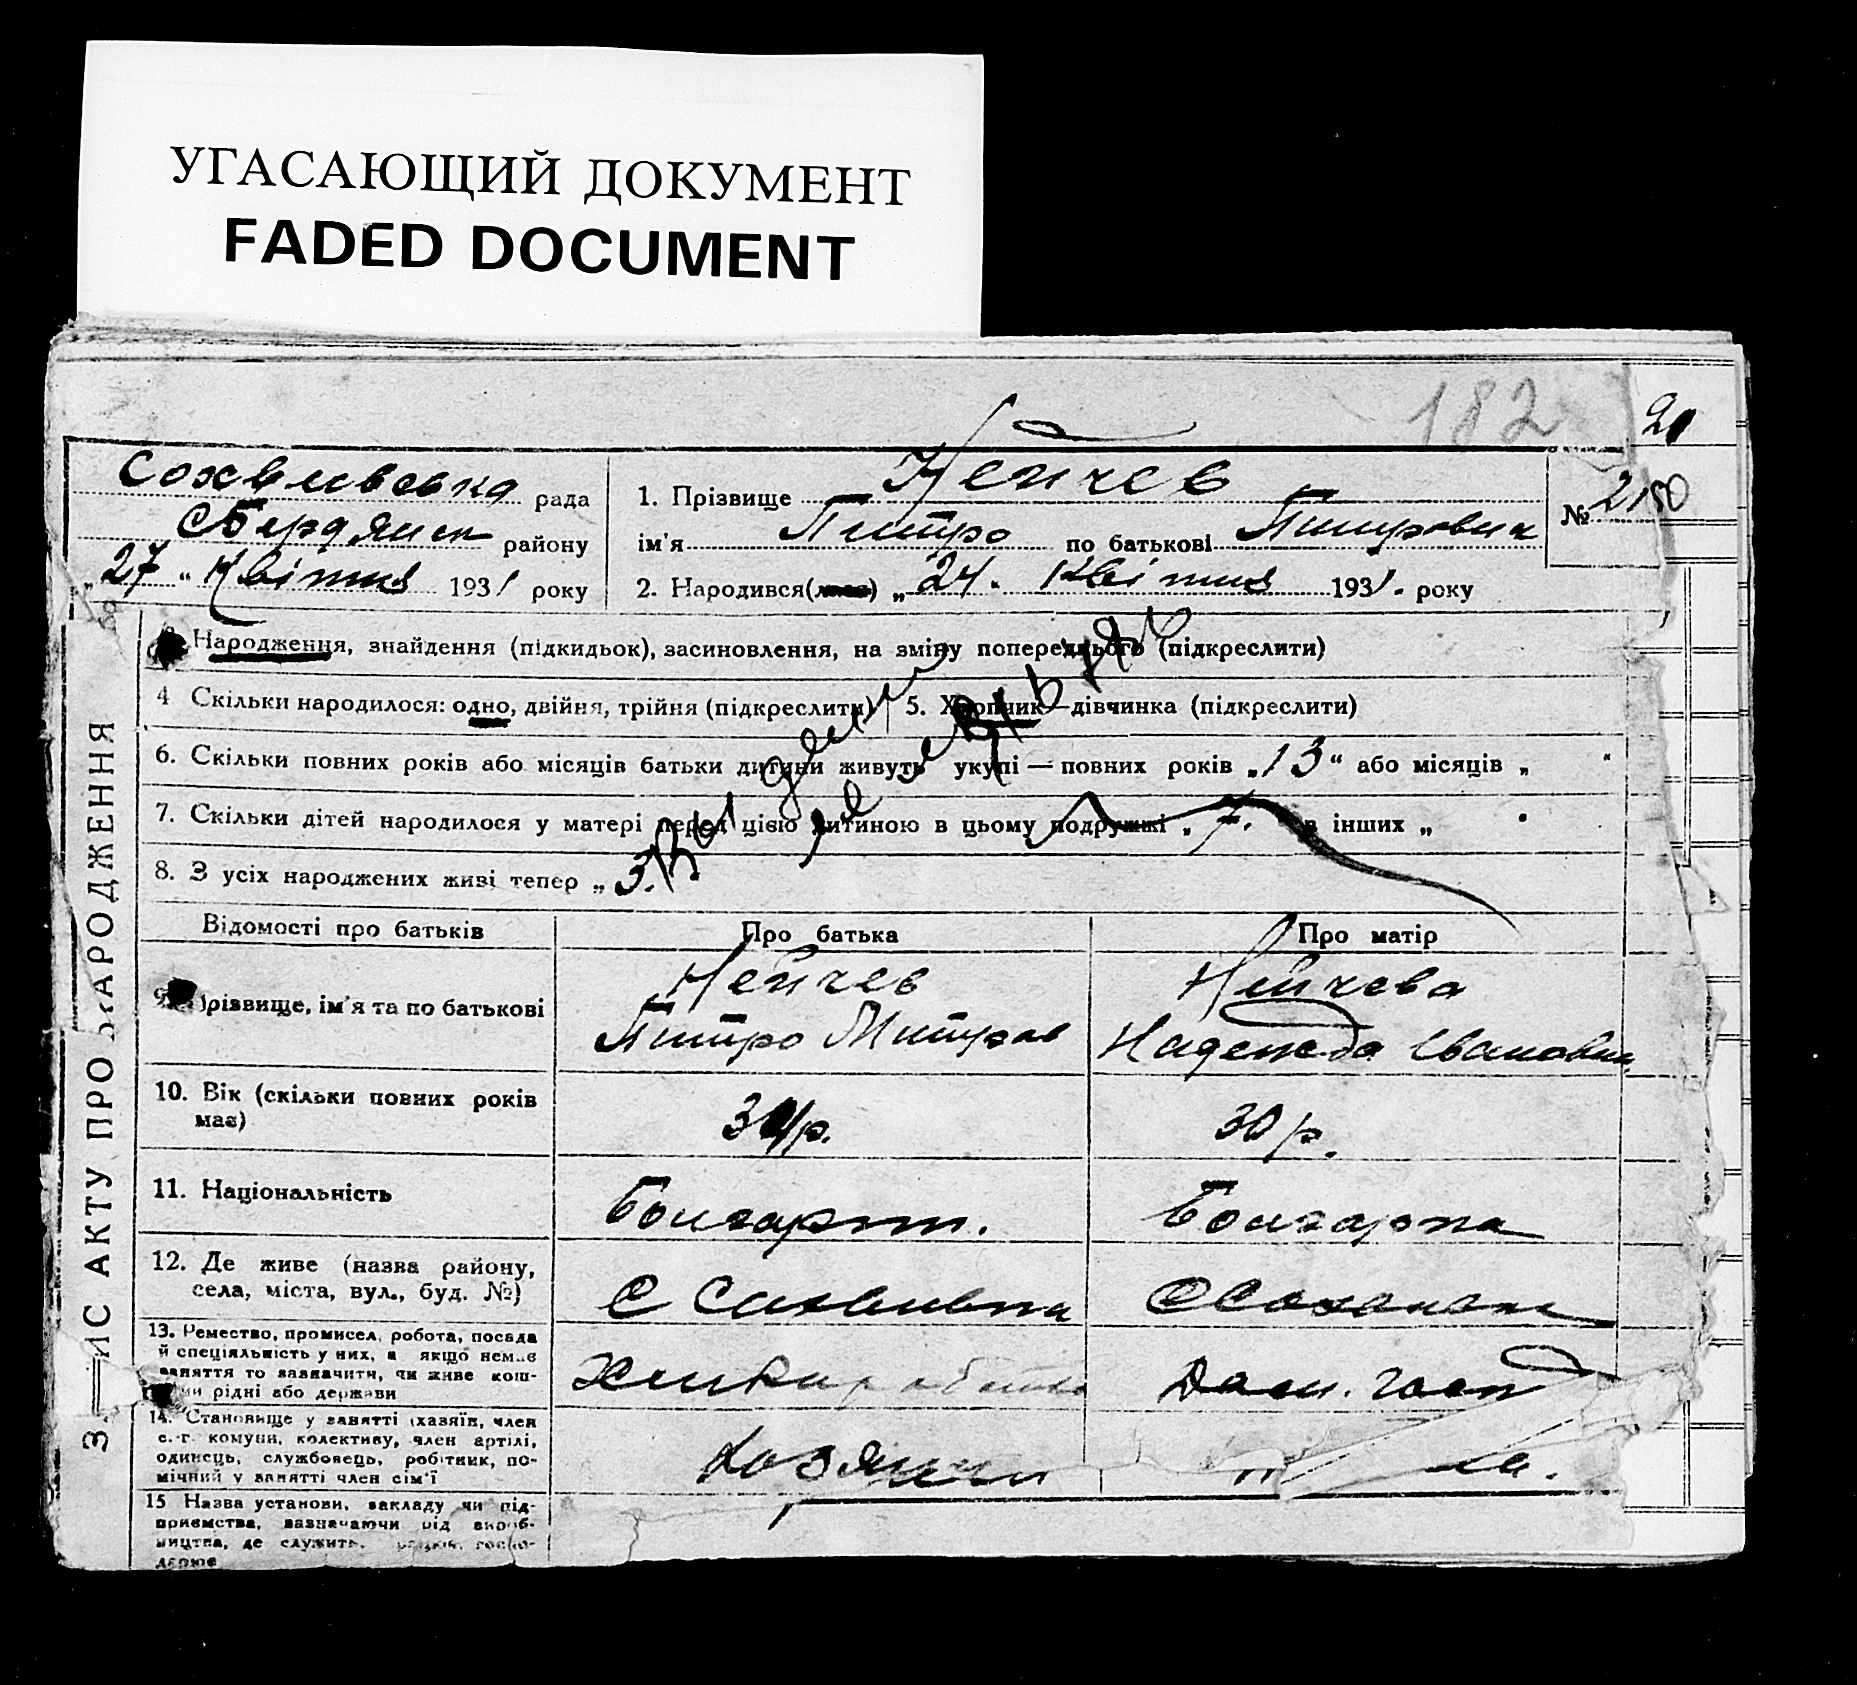 УГАСАЮЩИЙ ДОКУМЕНТ
FADED DOCUMENT
182
рада
Бердянськ району
„27“ Квітня 1931 року
1. Прізвище Нейчев
ім'я Питро по батькові Питрович
№ 2150
2. Народився(лась) „24“ Квітня 1931. року
ЗАПИС АКТУ ПРО НАРОДЖЕННЯ
Народження, знайдення (підкидьок), засиновлення, на зміну попереднього (підкреслити)
4 Скільки народилося: одно, двійня, трійня (підкреслити)
5. Хлопчик—дівчинка (підкреслити)
6. Скільки повних років або місяців батьки дитини живуть укупі — повних років „13“ або місяців „ “
7. Скільки дітей народилося у матері перед цією дитиною в цьому подружжі „7.“ в інших „
8. З усіх народжених живі тепер „3.
Відомості про батьків
Про батька
Про матір
9. Прізвище, ім'я та по батькові
Нейчев
Питро Митров
Нейчева
Надежда Ивановна
10. Вік (скільки повних років має)
р.
30 р.
11. Національність
Болгарин.
Болгарка
12. Де живе (назва району,
села, міста, вул., буд. №)
13. Ремество, промисел, робота, посада
й спеціяльність у них, а якщо немає
заняття то зазначити, чи живе кош-
тами рідні або держави
Дом. госп
14. Становище у занятті (хазяїн, член
с.-г. комуни, колективу, член артілі,
одинець, службовець, робітник, по-
мічний у занятті член сім'ї
Хозяин
"
15 Назва установи, закладу чи під-
приємства, зазначаючи рід вироб-
ництва, де служить,